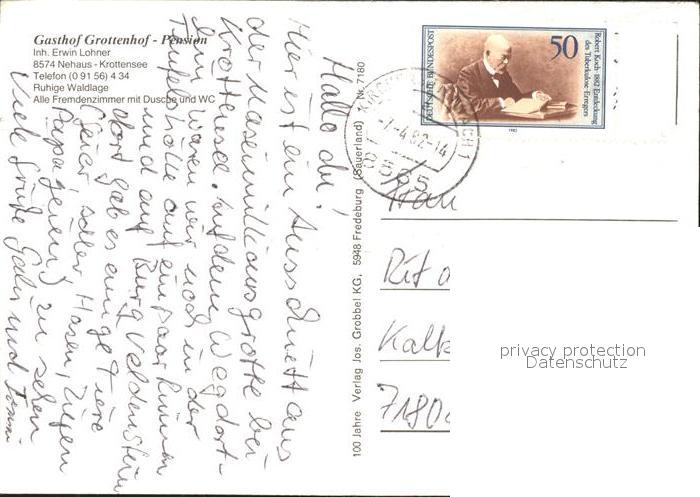 Gasthof Grottenhof - Pension
Inh. Erwin Lohner
8574 Nehaus - Krottensee
Telefon (0 91 56) 4 34
Ruhige Waldlage
Alle Fremdenzimmer mit Dusche und WC
Hallo du!
Hier ist ein Ausschnitt aus
der Maximiliansgrotte bei
Krottensee. Auf dem Weg dort-
hin waren wir noch in der
Teufelshöhle auf ein paar Ruinen
und auf Burg Veldenstein
dort gab es einige Tiere
(Geier, Adler, Hasen, Ziegen
Papageien) zu sehen
Viele Grüße Gabi und
100 Jahre Verlag Jos. Grobbel KG, 5948 Fredeburg (Sauerland) * Nr. 7180
DEUTSCHE BUNDESPOST
50
Robert Koch · 1882 Entdeckung
des Tuberkulose-Erregers
1982
-7.-4.82-14
8565
Frau
Rit
Kalk
7180
privacy protection
Datenschutz